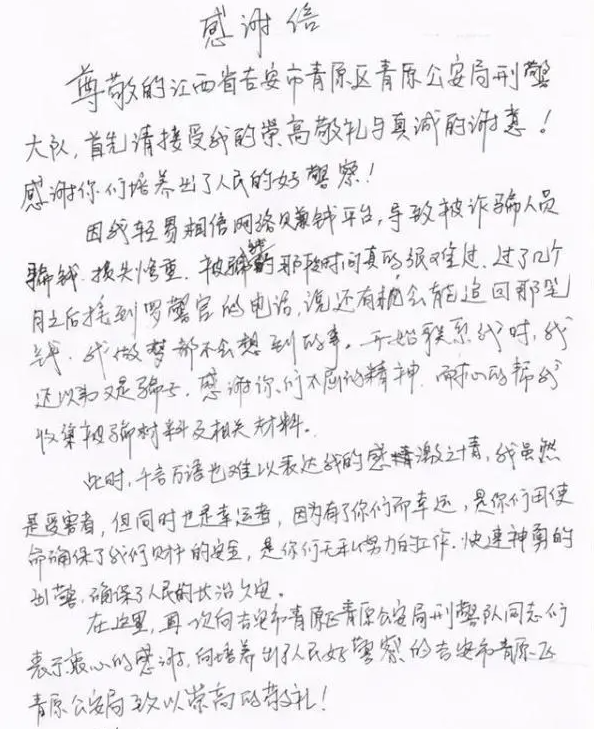 感谢信
尊敬的江西省吉安市青原区青原公安局刑警
大队，首先请接受我的崇高敬礼与真诚的谢意！
感谢你们培养出了人民的好警察！
因我轻易相信网络贝赚钱平台，导致被诈骗人员
骗钱．损失惨重．被骗钱的那段时间真的很难过．过了几个
月之后接到罗警官的电话，说还有机会有能追回那笔
钱．我做梦都不会想到的事。开始联系我时，我
还以为又是骗子．感谢你们不屈的精神．耐心的帮我
收集被骗材料及相关材料。
此时，千言万语也难以表达我的感情激之情，我虽然
是受害者，但同时也是幸运者，因为有了你们而幸运，是你们用使
命确保了我们财产的安全，是你们无私努力的工作．快速神勇的
出警．确保了人民的长治久安。
在这里，再一次向吉安市青原区青原公安局刑警队同志们
表示衷心的感谢，向培养出了人民好警察的吉安市青原区
青原公安局致以崇高的敬礼！